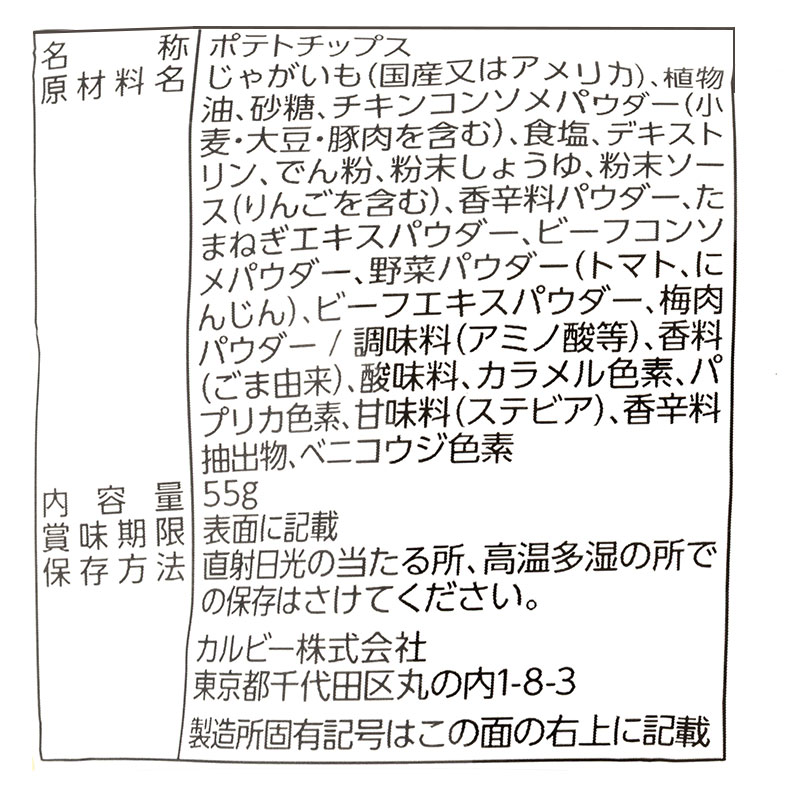 名称 ポテトチップス
原材料名 じゃがいも(国産又はアメリカ)、植物
油、砂糖、チキンコンソメパウダー(小
麦・大豆・豚肉を含む)、食塩、デキスト
リン、でん粉、粉末しょうゆ、粉末ソー
ス(りんごを含む)、香辛料パウダー、た
まねぎエキスパウダー、ビーフコンソ
メパウダー、野菜パウダー(トマト、に
んじん)、ビーフエキスパウダー、梅肉
パウダー / 調味料(アミノ酸等)、香料
(ごま由来)、酸味料、カラメル色素、パ
プリカ色素、甘味料(ステビア)、香辛料
抽出物、ベニコウジ色素
内容量 55g
賞味期限 表面に記載
保存方法 直射日光の当たる所、高温多湿の所で
の保存はさけてください。
カルビー株式会社
東京都千代田区丸の内1-8-3
製造所固有記号はこの面の右上に記載